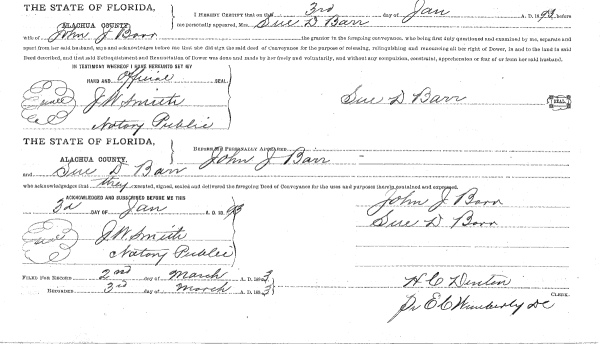 THE STATE OF FLORIDA,
ALACHUA COUNTY
I HEREBY CERTIFY that on this 3rd day of Jan A. D. 1893, before
me personally appeared, Mrs. Sue D Barr
wife of John J Barr the grantor in the foregoing conveyance, who being first duly questioned and examined by me, separate and
apart from her said husband, says and acknowledges before me that she did sign the said deed of Conveyance for the purpose of releasing, relinquishing and renouncing all her right of Dower, in and to the land in said
Deed described, and that said Relinquishment and Renunciation of Dower was done and made by her freely and voluntarily, and without any compulsion, constraint, apprehension or fear of or from her said husband.
IN TESTIMONY WHEREOF I HAVE HEREUNTO SET MY
HAND AND official SEAL
Seal
J. W. Smith
Notary Public
Sue D Barr
SEAL
THE STATE OF FLORIDA,
ALACHUA COUNTY.
BEFORE ME PERSONALLY APPEARED John J Barr
and Sue D Barr
who acknowledges that they executed, signed, sealed and delivered the foregoing Deed of Conveyance for the uses and purposes therein contained and expressed.
ACKNOWLEDGED AND SUBSCRIBED BEFORE ME THIS
3d DAY OF Jan A. D. 1893
Seal
J. W. Smith
Notary Public
John J Barr
Sue D Barr
FILED FOR RECORD 2nd day of March A. D. 1893
RECORDED 3rd day of March A. D. 1893
H C Denton
CLERK.
Pr E C Wimberly DC